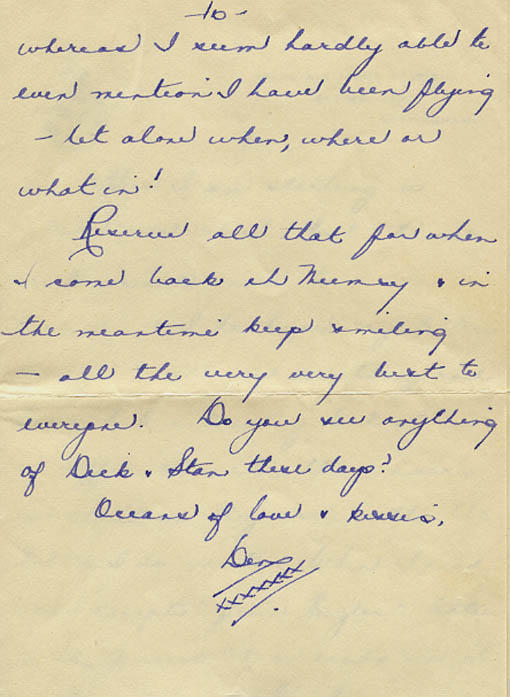 -10-
whereas I seem hardly able to
even mention I have been flying
- let alone when, where or
what in!
Reserve all that for when
I come back eh Mumsy & in
the meantime keep smiling
- all the very very best to
everyone. Do you see anything
of Dick & Stan these days?
Oceans of love & kisses,
Den
xxxxxxx